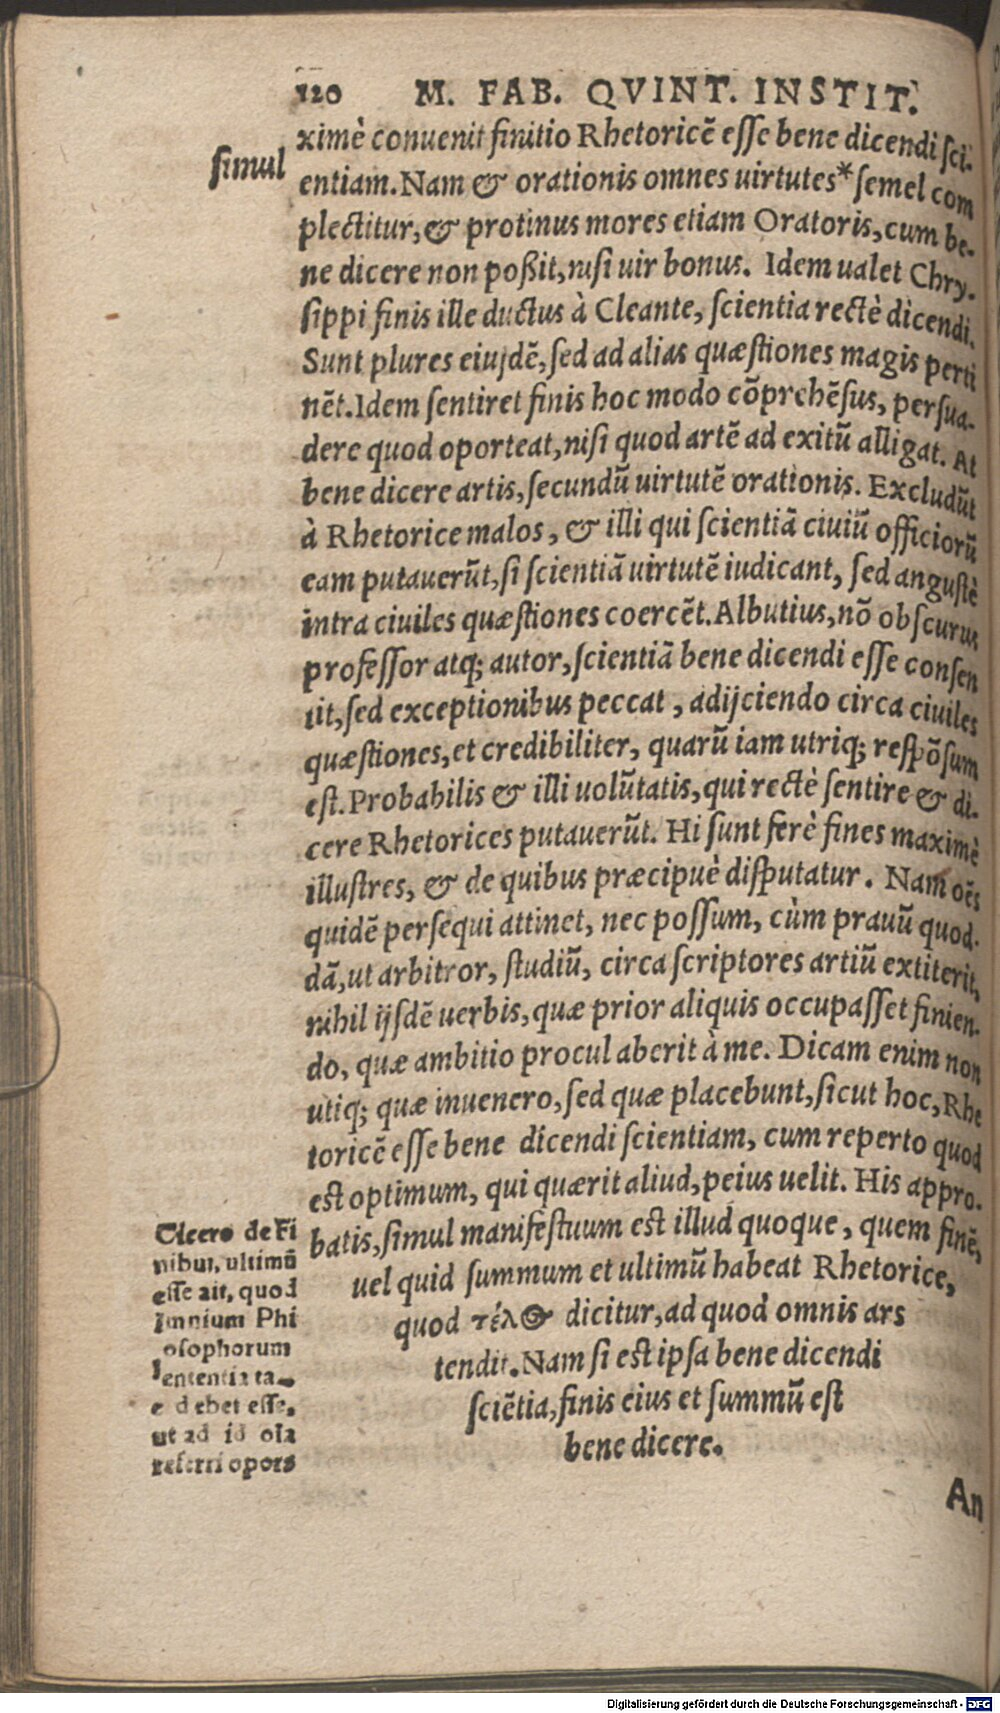 120 M. FAB. QVINT. INSTIT.
ximè conuenit finitio Rhetoricẽ esse bene dicendi sci-
simul
entiam. Nam & orationis omnes uirtutes* semel com
plectitur, & protinus mores etiam Oratoris, cum be-
ne dicere non poßit, nisi uir bonus. Idem ualet Chry-
sippi finis ille ductus à Cleante, scientia rectè dicendi.
Sunt plures eiusdẽ, sed ad alias quæstiones magis perti
nẽt. Idem sentiret finis hoc modo cõprehẽsus, persua-
dere quod oporteat, nisi quod artẽ ad exitũ alligat. At
bene dicere artis, secundũ uirtutẽ orationis. Excludũt
à Rhetorice malos, & illi qui scientiã ciuiũ officiorũ
eam putauerũt, si scientiã uirtutẽ iudicant, sed angustè
intra ciuiles quæstiones coercẽt. Albutius, nõ obscurus
professor atq; autor, scientiã bene dicendi esse consen
tit, sed exceptionibus peccat, adijciendo circa ciuiles
quæstiones, et credibiliter, quarũ iam utriq; respõsum
est. Probabilis & illi uolũtatis, qui rectè sentire & di-
cere Rhetorices putauerũt. Hi sunt ferè fines maximè
illustres, & de quibus præcipuè disputatur. Nam oẽs
quidẽ persequi attinet, nec possum, cùm prauũ quod-
dã, ut arbitror, studiũ, circa scriptores artiũ extiterit,
nihil ijsdẽ uerbis, quæ prior aliquis occupasset finien-
do, quæ ambitio procul aberit à me. Dicam enim non
utiq; quæ inuenero, sed quæ placebunt, sicut hoc, Rhe
toricẽ esse bene dicendi scientiam, cum reperto quod
est optimum, qui quærit aliud, peius uelit. His appro-
batis, simul manifestuum est illud quoque, quem finẽ,
uel quid summum et ultimũ habeat Rhetorice,
quod τέλος dicitur, ad quod omnis ars
tendit. Nam si est ipsa bene dicendi
sciẽtia, finis eius et summũ est
bene dicere.
Cicero de Fi
nibus, ultimũ
esse ait, quod
omnium Phi
osophorum
sententia ta-
e debet esse,
ut ad id oĩa
referri opors
An
Digitalisierung gefördert durch die Deutsche Forschungsgemeinschaft - DFG